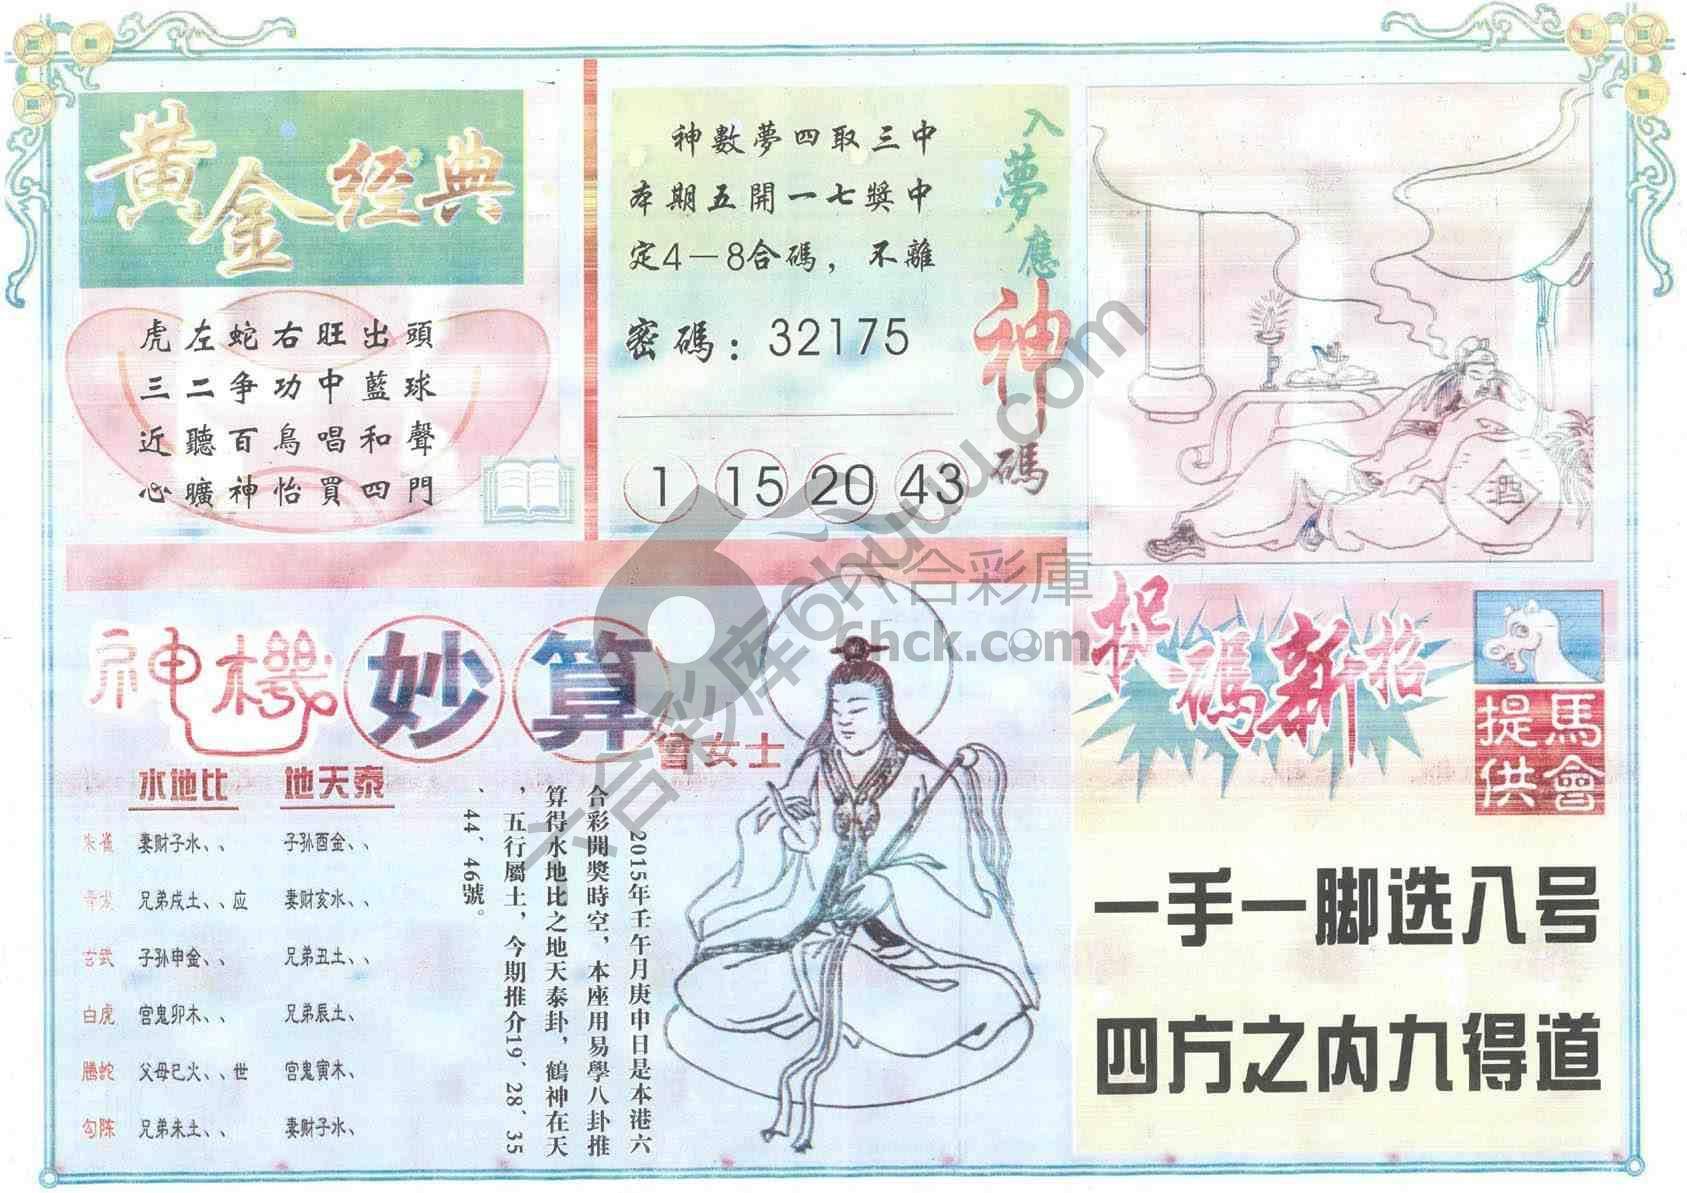 黃金经典
虎左蛇右旺出頭
三二争功中藍球
近聽百鳥唱和聲
心曠神怡買四門
入夢應神碼
神數夢四取三中
本期五開一七獎中
定4－8合碼，不離
密碼：32175
1 15 20 43
酒
神機妙算
曾女士
水地比 地天泰
朱雀 妻财子水、、 子孙酉金、、
青龙 兄弟戌土、、应 妻财亥水、、
玄武 子孙申金、、 兄弟丑土、、
白虎 宫鬼卯木、、 兄弟辰土、
騰蛇 父母巳火、、世 宫鬼寅木、
勾陈 兄弟未土、、 妻财子水、
2015年壬午月庚申日是本港六
合彩開獎時空，本座用易學八卦推
算得水地比之地天泰卦，鶴神在天
，五行屬土，今期推介19、28、35
、44、46號。
捉碼新招
馬會提供
一手一脚选八号
四方之内九得道
六合彩库6huu.com
六合彩庫
6hck.com